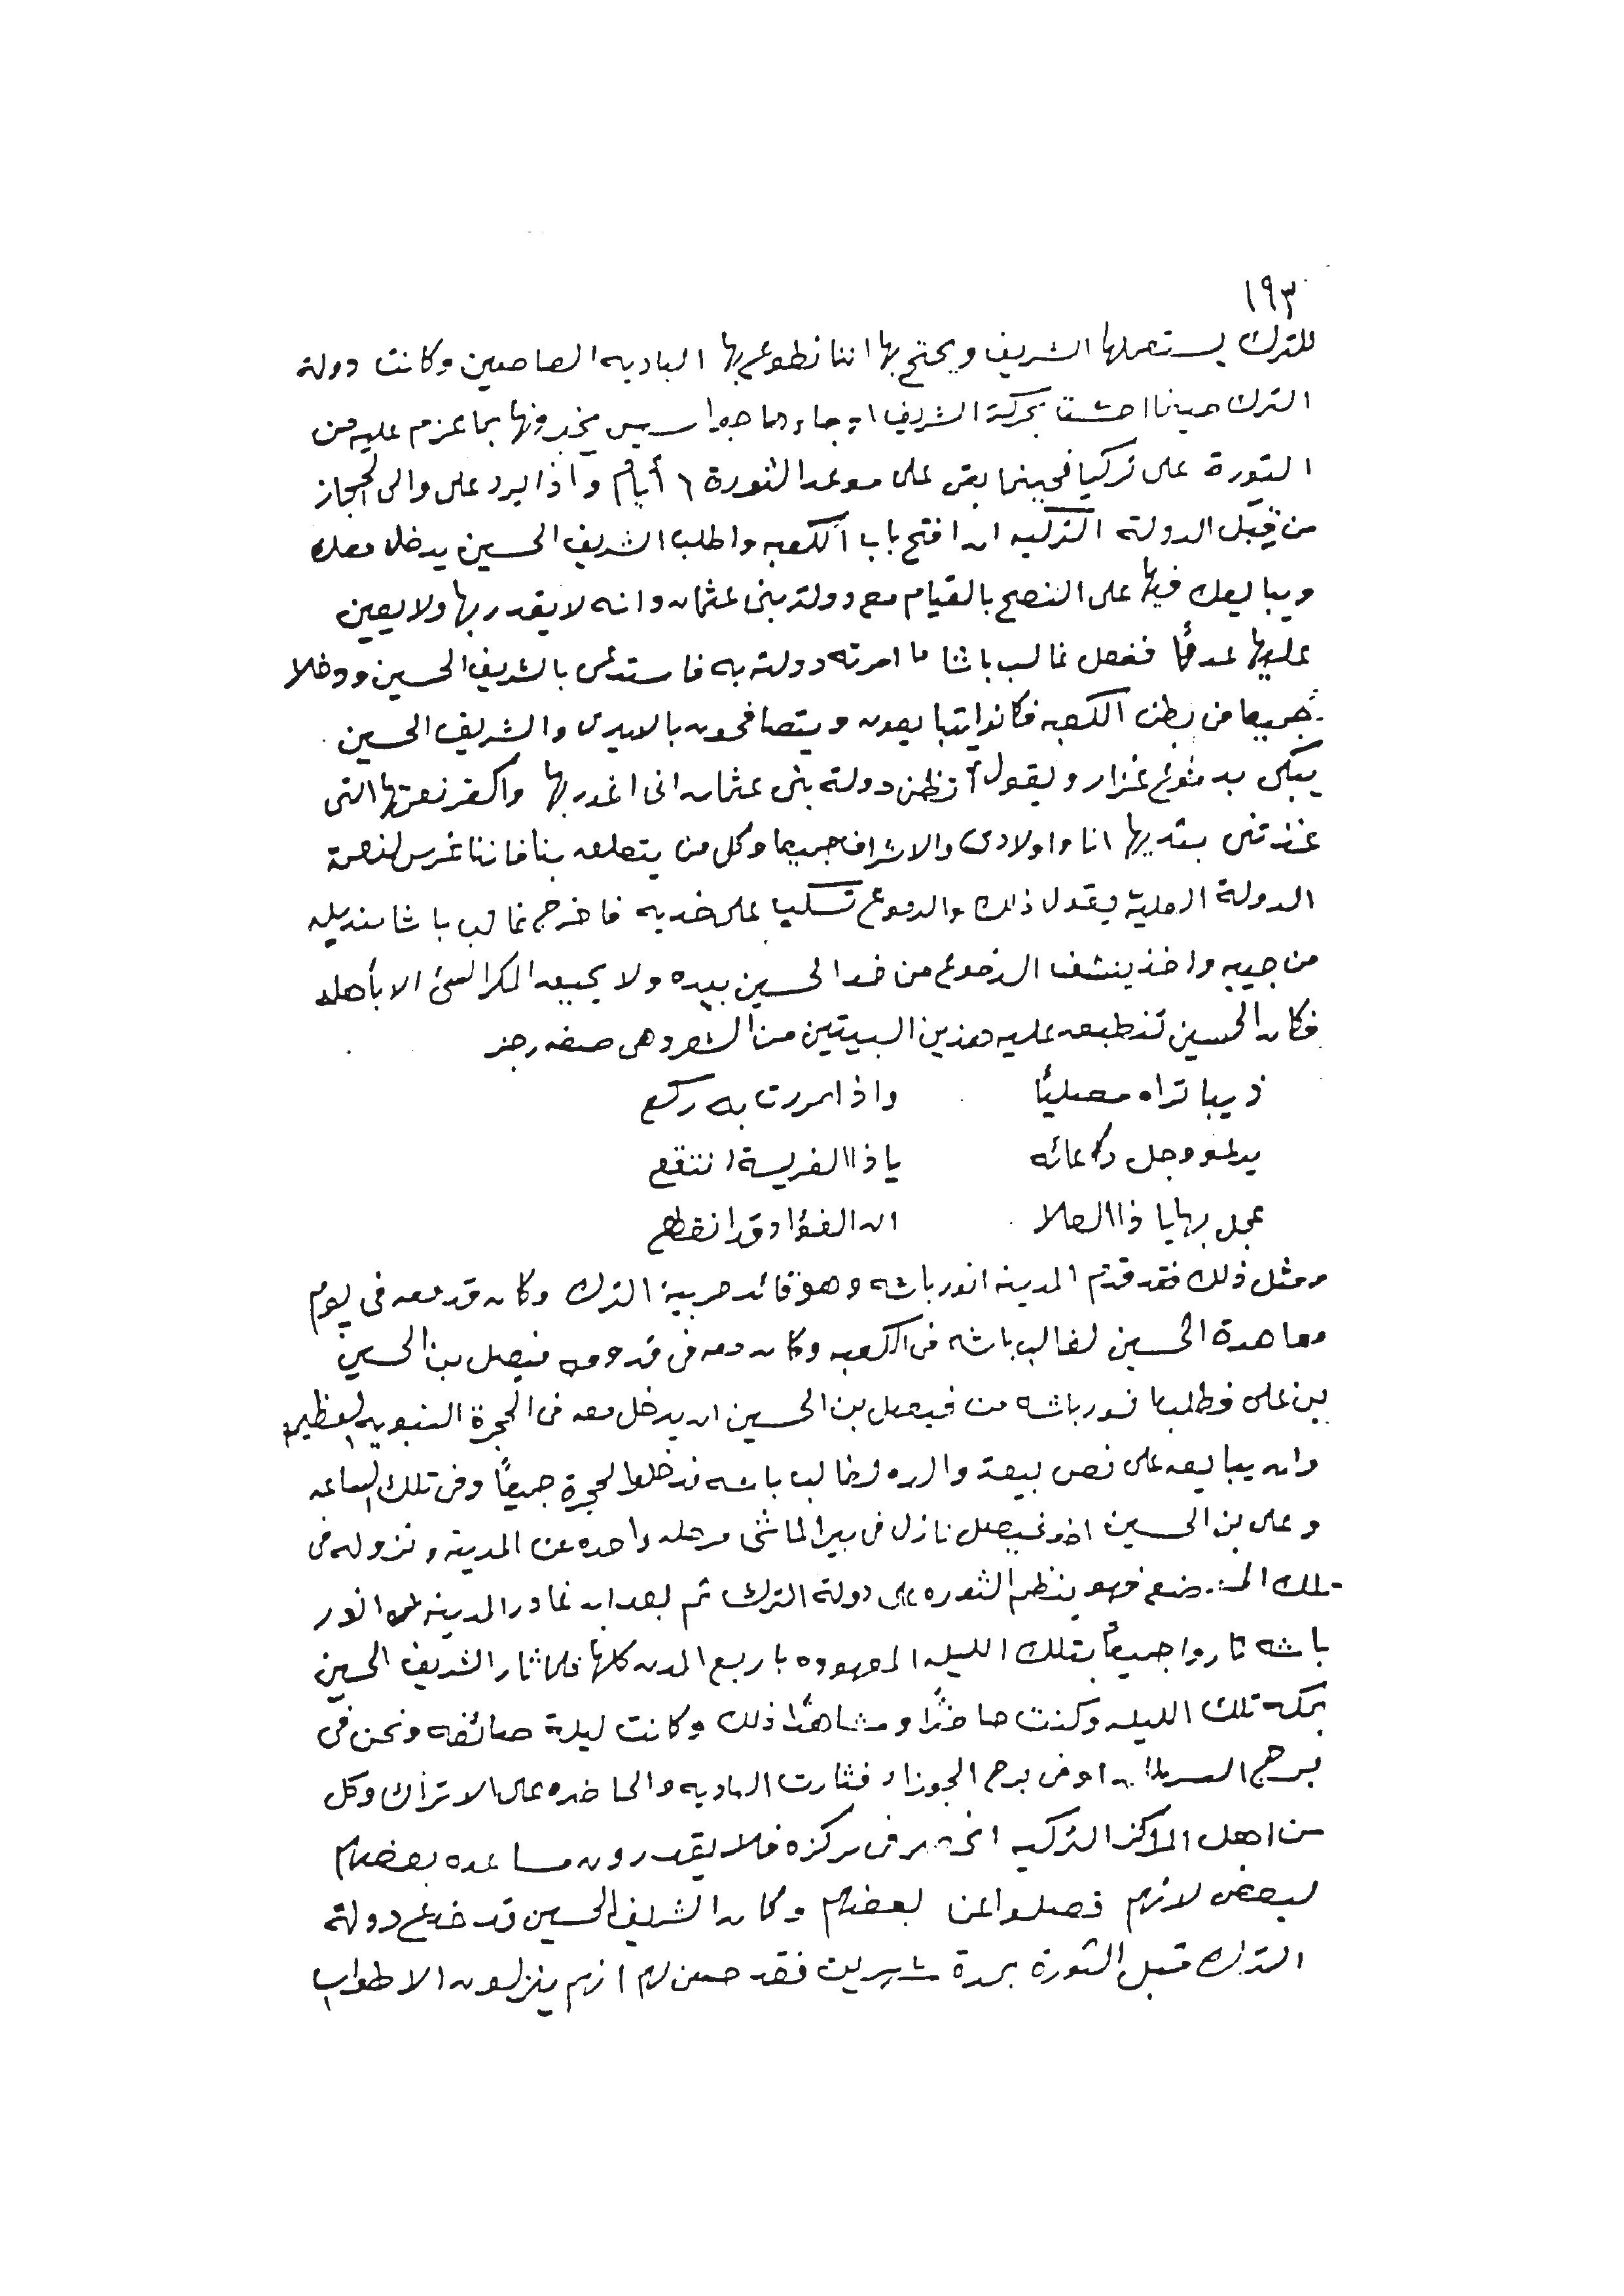 ١٩٣
للترك يستعملها الشريف ويحتج بها اننا نطوع بها الباديه العاصين وكانت دولة
الترك حينما احست بحركة الشريف جاءها جواسيس يخبرونها بما عزم عليه من
الثورة على تركيا فحينما بقى على موعد الثورة ٦ أيام واذا يرد على والى الحجاز
من قِبَل الدولة التركيه ان افتح باب الكعبه واطلب الشريف الحسين يدخل معك
ويبايعك فيها على النصح بالقيام مع دولة بنى عثمان وانه لا يغدر بها ولا يعين
عليها عدوًا ففعل غالب باشا ما امرته دولته به فاستدعى بالشريف الحسين ودخلا
جميعا من بطن الكعبه فكانوا يتبايعون ويتصافحون بالايدى والشريف الحسين
يبكى بدموع غزار ويقول أتظن دولة بنى عثمان انى اغدر بها واكفر نعمتها التى
غذتنى بثديها انا واولادى والاشراف جميعا وكل من يتعلق بنا فاننا غرس لنعمة
الدولة العلية يقول ذلك والدموع تسكب على خديه فاخرج غالب باشا منديله
من جيبه واخذ ينشف الدموع من خد الحسين بيده ولا يحيق المكر السئ الا بأهله
فكان الحسين تنطبق عليه هذين البيتين من الشعر وهى صفه رجز
ذيبا تراه مصليًا واذا مررت به ركع
يدعو وجل دعائه ياذا الفريسة انتقع
عجل بها ياذا العلا ان الفؤاد قد انقطع
ومثل ذلك فقد قدم المدينه انور باشه وهو قائد حربية الترك وكان قدمه فى يوم
معاهدة الحسين لغالب باشه فى الكعبه وكان معه فى قدومه فيصل بن الحسين
بن على فطلب انور باشه من فيصل بن الحسين ان يدخل معه فى الحجرة النبويه العظيمه
وان يبايعه على نص بيعة والده لغالب باشه فدخلوا الحجرة جميعًا وفى تلك الساعه
وعلى بن الحسين اخو فيصل نازل فى بير الماشى مرحله واحده عن المدينه ونزوله فى
تلك الموضع فهو ينظم الثوره على دولة الترك ثم بعد ان غادر المدينه انور
باشه ثاروا جميعًا بتلك الليله المعهوده باربع المدن كلها فلما ثار الشريف الحسين
بمكه تلك الليله وكنت حاضرًا ومشاهدًا ذلك وكانت ليلة صائفه ونحن فى
برج السرطان او فى برج الجوزاء فثارت الباديه والحاضره على الاتراك وكل
من اهل المراكز التركيه انحصر فى مركزه فلا يقدرون مساعده بعضهم
لبعض لانهم فصلوا عن بعضهم وكان الشريف الحسين قد خدع دولة
الترك قبل الثورة بمدة شهرين فقد حسن لهم انهم ينزلون الاطواب